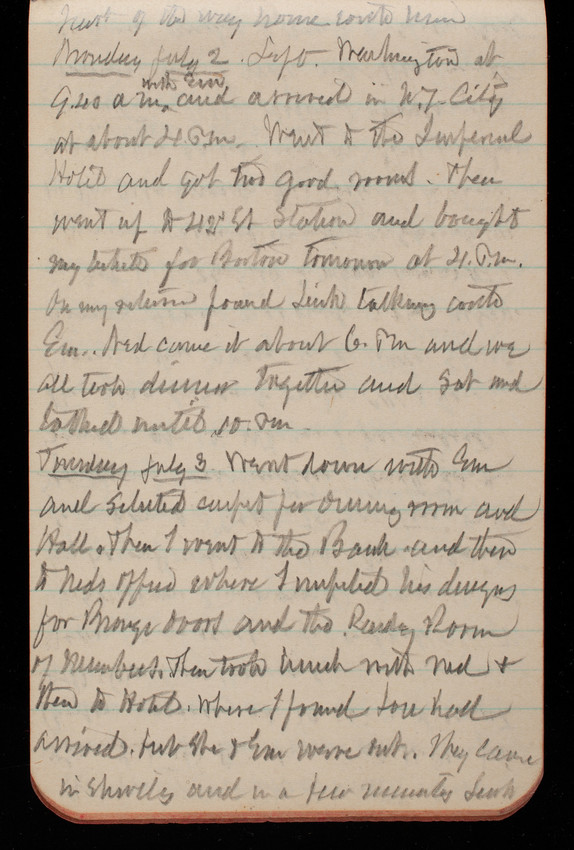 most of the way home with him
Monday July 2. Left. Washington at
9.40 a m, with Em and arrived in N.Y. City
at about 4 P.m. Went to the Imperial
Hotel and got two good rooms. Then
went up to 42d St Station and bought
my tickets for Boston tomorrow at 4. P.m.
On my return found Link talking with
Em. Ned came it about 6. Pm and we
all took dinner together and Sat and
talked until 10. Pm
Tuesday July 3. Went down with Em
and Selected carpet for Dining room and
Hall. Then I went to the Bank and then
to Neds Office where I inspected his designs
for Bronze doors and the Reading Room
of Members. Then took lunch with Ned &
then to Hotel. where I found had
arrived. but She & Em were out. They came
in Shortly and in a few minutes Link